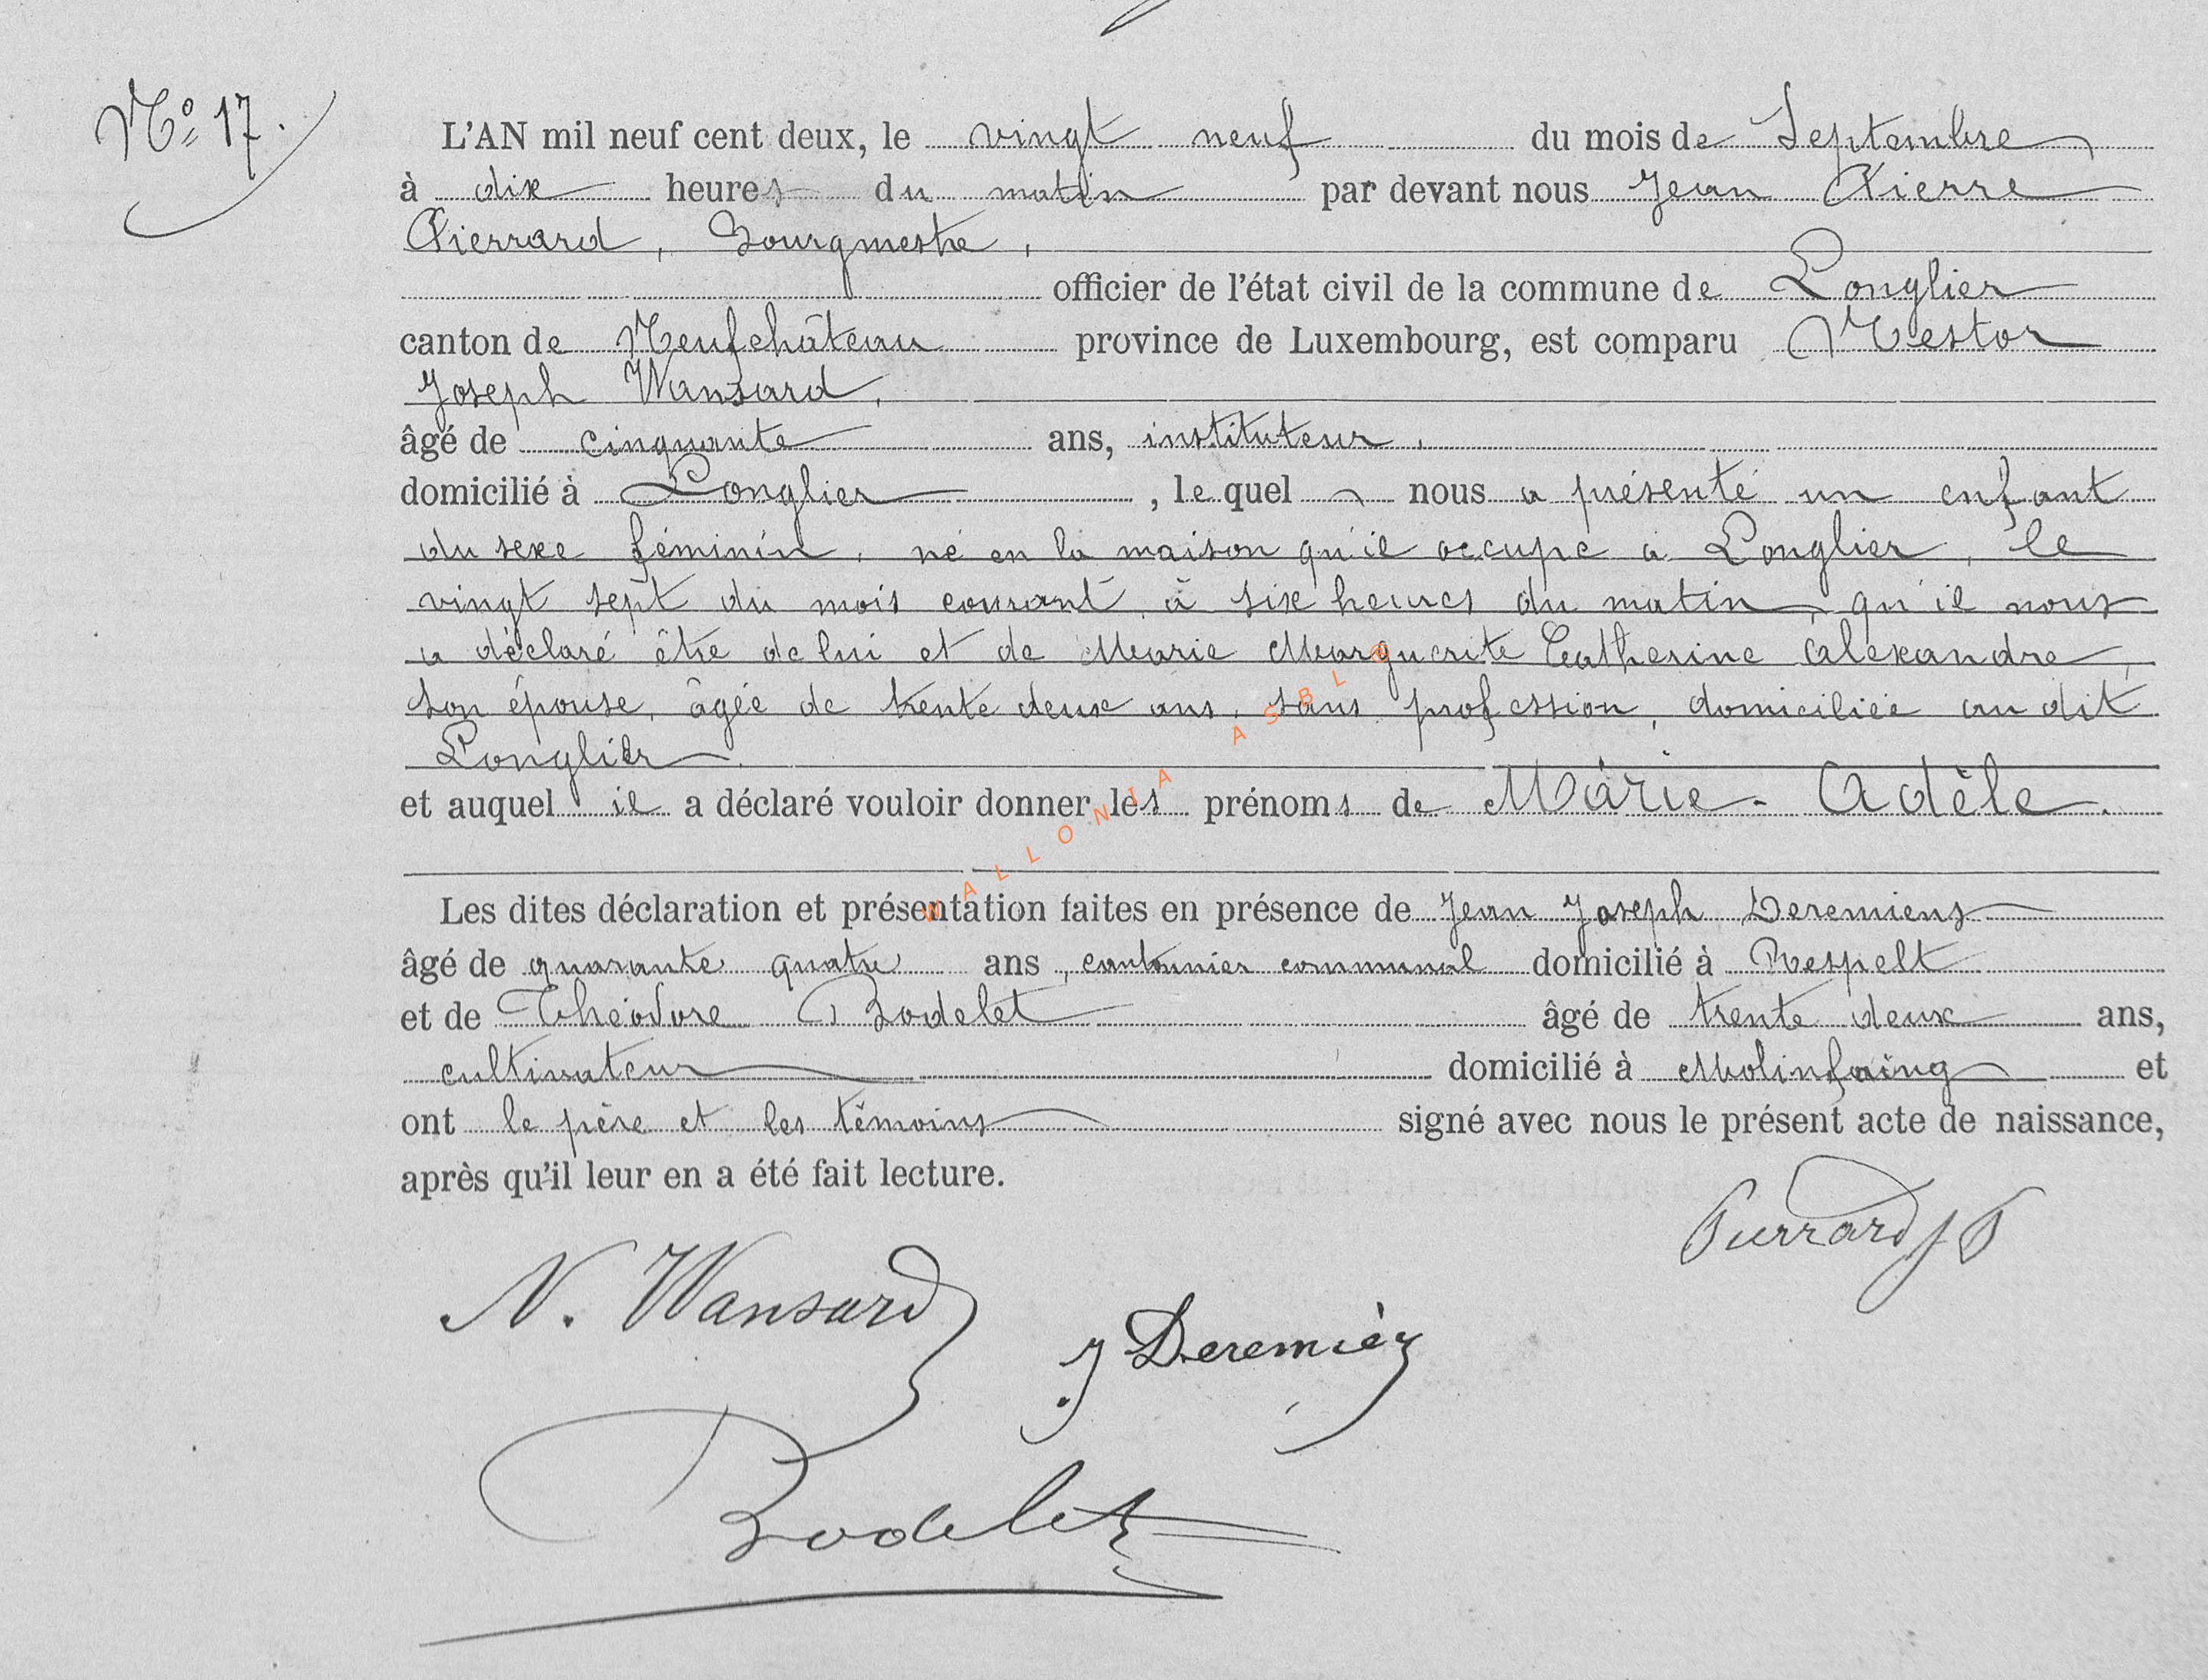 N° 17.
L'AN mil neuf cent deux, le vingt neuf du mois de Septembre
à dix heures du matin par devant nous Jean Pierre
Pierrard, Bourgmestre,
officier de l'état civil de la commune de Longlier
canton de Neufchâteau province de Luxembourg, est comparu Nestor
Joseph Wansard,
âgé de cinquante ans, instituteur,
domicilié à Longlier, lequel nous a présenté un enfant
du sexe féminin, né en la maison qu'il occupe à Longlier, le
vingt sept du mois courant, à six heures du matin, qu'il nous
a déclaré être de lui et de Marie Marguerite Catherine Alexandre,
son épouse, âgée de trente deux ans, sans profession, domiciliée au dit
Longlier.
et auquel il a déclaré vouloir donner les prénoms de Marie-Adèle.
Les dites déclaration et présentation faites en présence de Jean Joseph Deremiens
âgé de quarante quatre ans, cantonnier communal domicilié à Respelt
et de Théodore Bodelet âgé de trente deux ans,
cultivateur domicilié à Molinfaing et
ont le père et les témoins signé avec nous le présent acte de naissance,
après qu'il leur en a été fait lecture.
Pierrard J P
N. Wansard
J Deremièz
Bodelet
WALLONIA ASBL